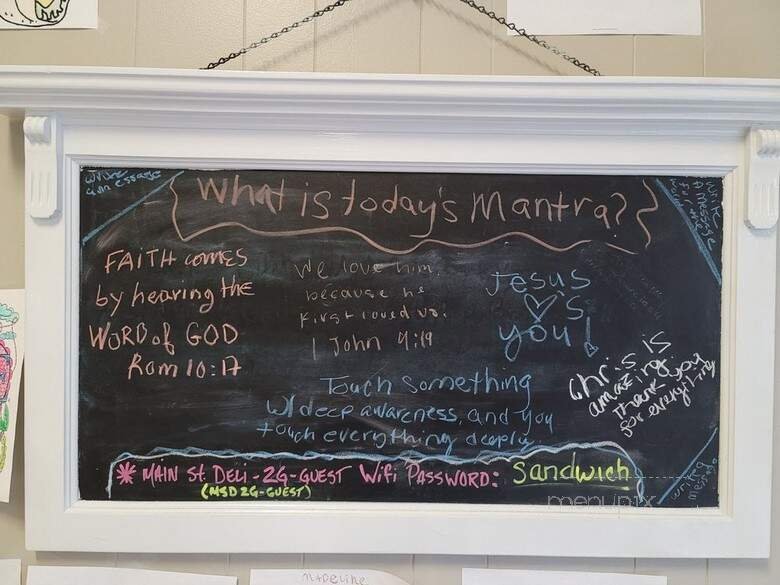 write
a message
What is today's Mantra?
Write
A message
for the
world
FAITH comes
by hearing the
WORD of GOD
Rom 10:17
We love him,
because he
first loved us.
1 John 4:19
Jesus
♡'s
you!
Chris is
amazing
Thank you
for everything
Touch something
W/ deep awareness, and you
touch everything deeply.
* MAIN St. DELI - 2G-GUEST WiFi PASSWORD: Sandwich
(MSD 2G-GUEST)
menupix
madeline